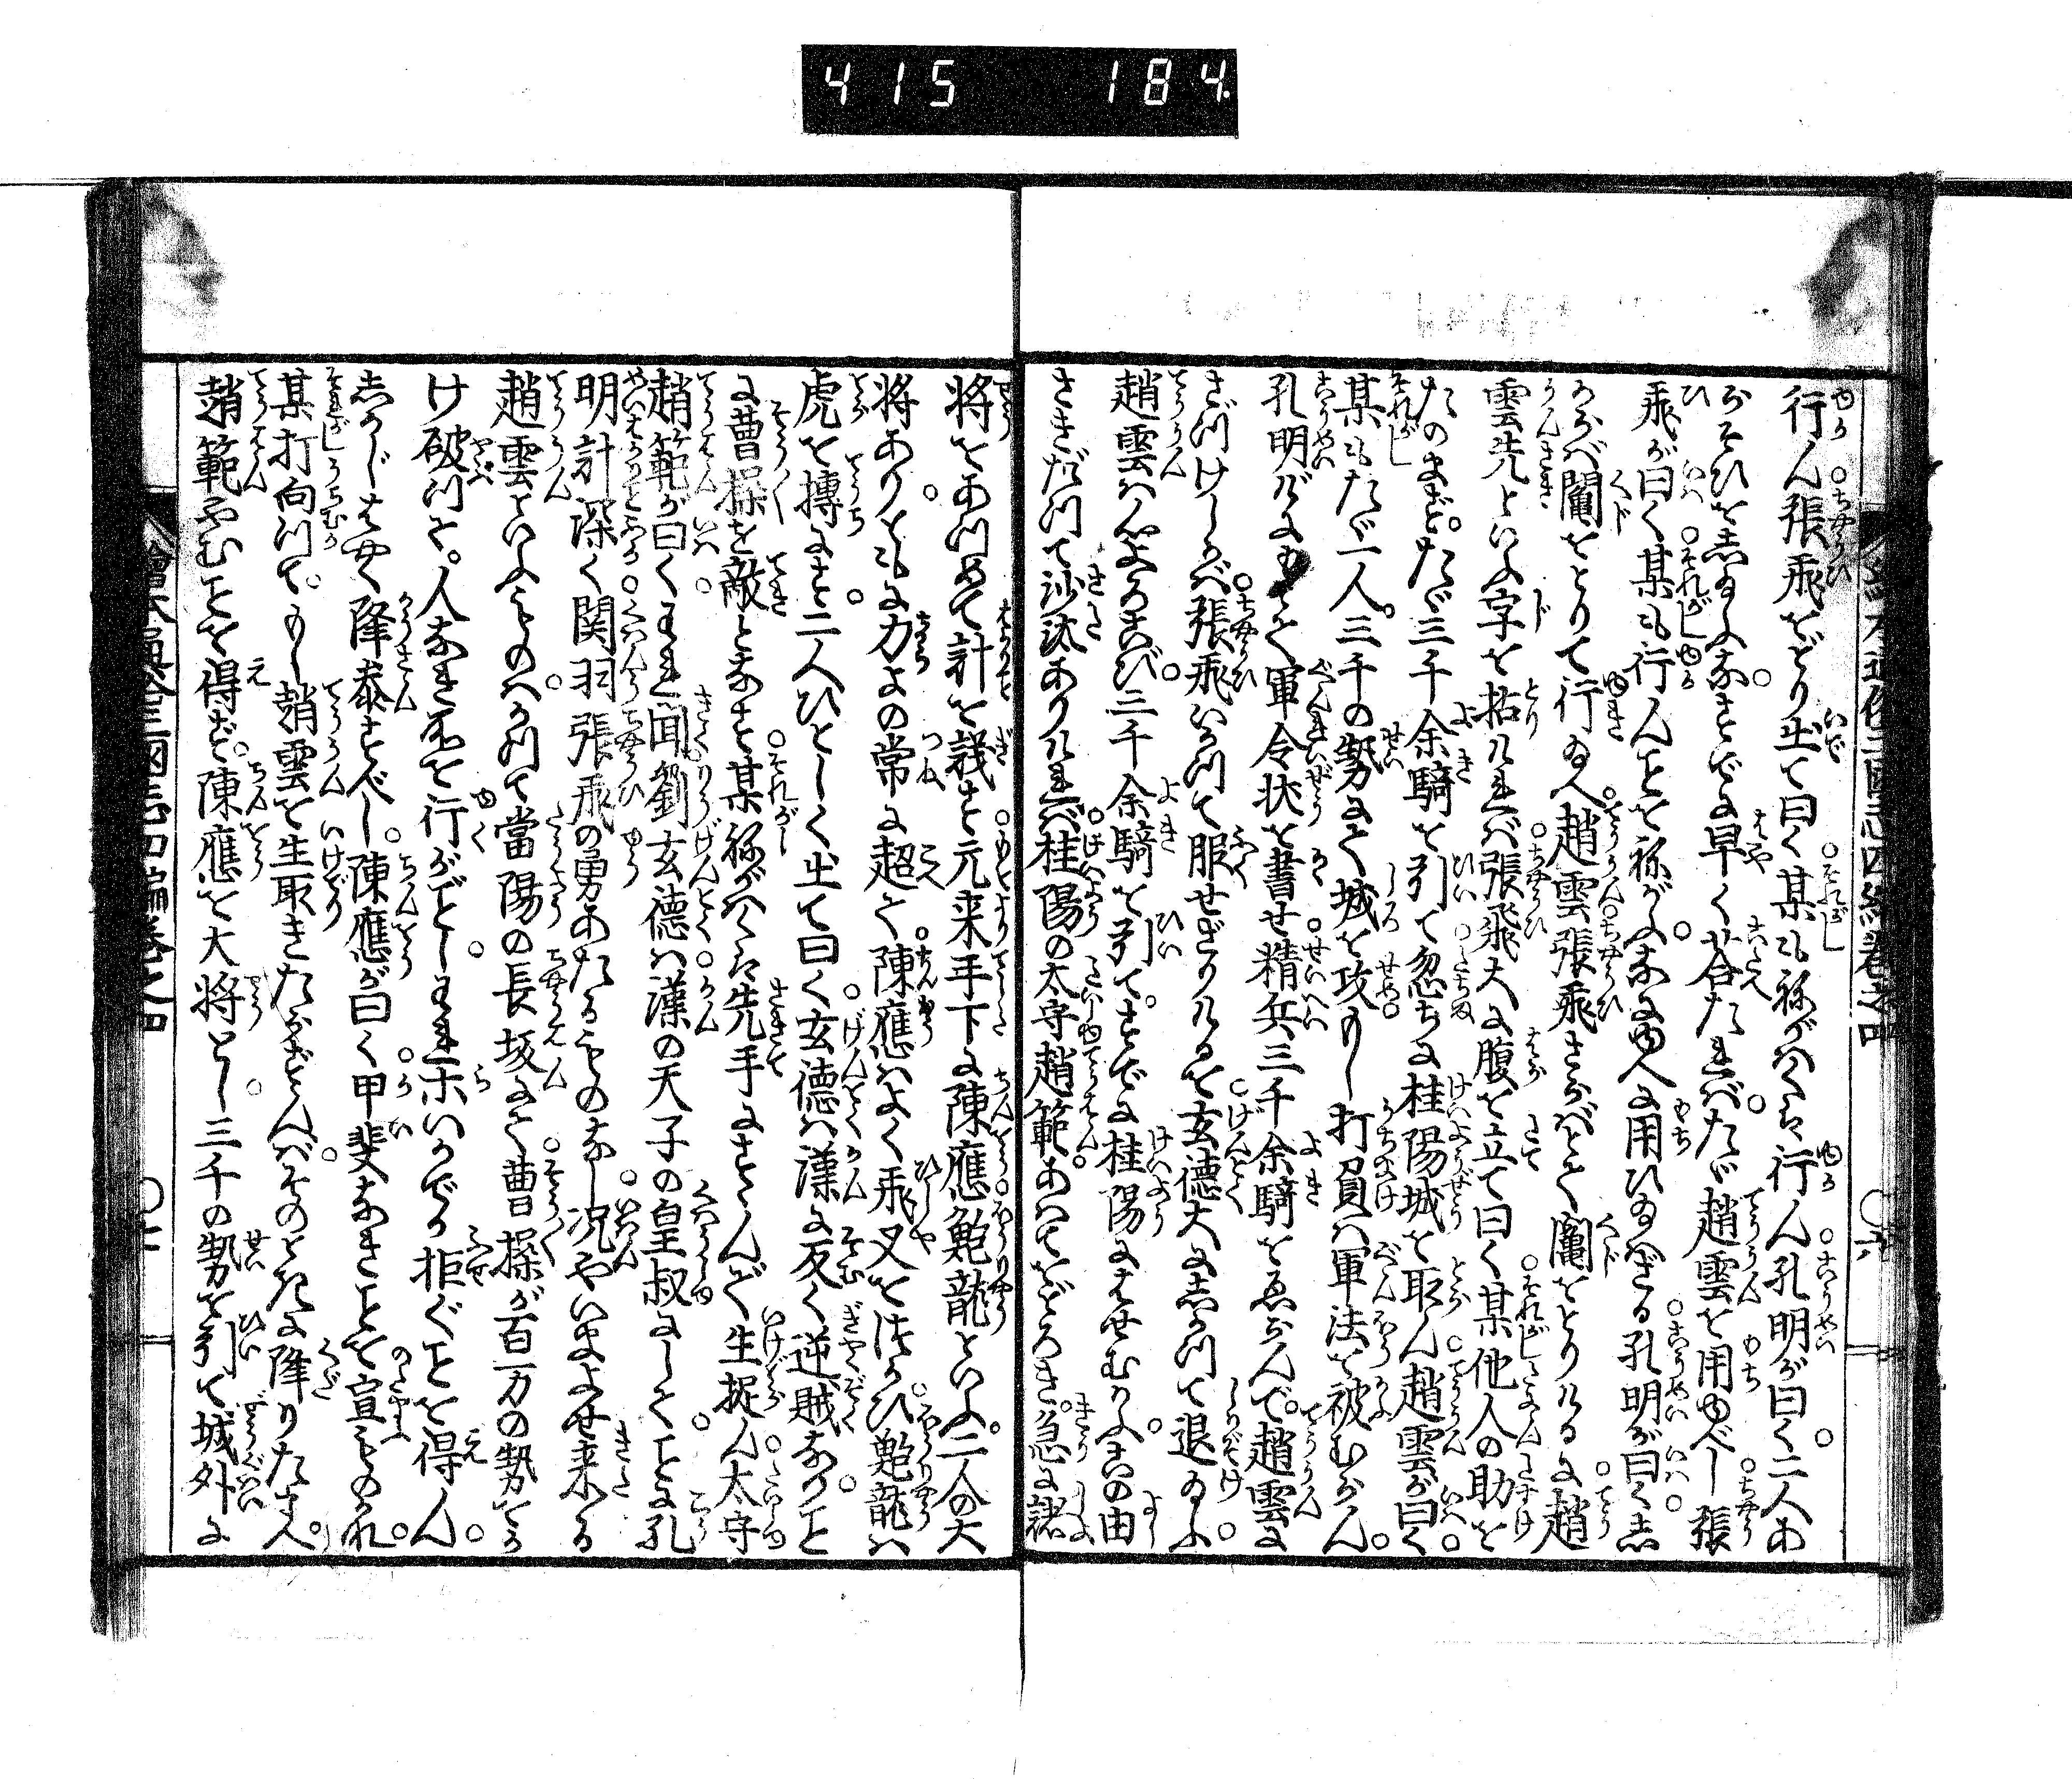 415 184.
行ん張飛をどり出て曰く某も祢がはくは行ん孔明が曰く二人あ
らそひを志玉ふなすでに早く答たればたゞ趙雲を用ゆべし張
飛が曰く某も行んことを祢がふなにゆへに用ひ玉はざる孔明が曰く志
からば鬮をとりて行玉へ趙雲張飛さらばとて鬮をとりけるに趙
雲先といふ字を拈ければ張飛大に腹を立て曰く某他人の助を
たのまずたゞ三千余騎を引て忽ちに桂陽城を取ん趙雲が曰く
某もたゞ一人三千の勢にて城を攻もし打負ば軍法を被むらん
孔明がまへにて軍令状を書せ精兵三千余騎をゑらんで趙雲に
さづけしかば張飛いかつて服せざりけるを玄徳大に志かつて退玉ふ
趙雲は心よろこび三千余騎を引てすでに桂陽にはせむかふ此由
さきだつて沙汰ありければ桂陽の太守趙範あはてをどろき急に諸
将をあつめて計を議す元来手下に陳應鮑龍といふ二人の大
将ありともに力よの常に超て陳應はよく飛叉をつかひ鮑龍は
虎を搏にす二人ひとしく出て曰く玄徳は漢に反く逆賊なりこと
に曹操を敵となす某祢がはくは先手にすゝんで生捉ん太守
趙範が曰くわれ聞劉玄徳は漢の天子の皇叔にしてことに孔
明計深く関羽張飛の勇あたるものなし況やいまよせ来る
趙雲といふものはかつて當陽の長坂にて曹操が百万の勢をか
け破つと人なき所を行がごとしわれホいかでか拒ぐことを得ん
志かじはやく降参すべし陳應が曰く甲斐なきことを宣ものかれ
某打向つてもし趙雲を生取きたらずんばそのときに降りたまへ
趙範やむことを得ず陳應を大将とし三千の勢を引て城外に
繪本通俗三國志四編巻之四
○六
繪本通俗三國志四編巻之四